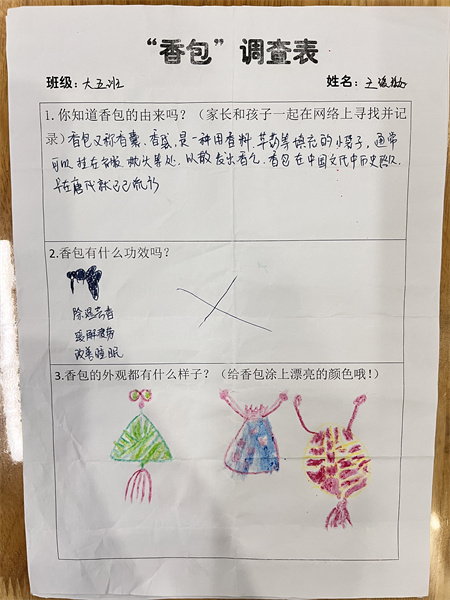 “香包”调查表
班级：大五班 姓名：王
1. 你知道香包的由来吗？（家长和孩子一起在网络上寻找并记
录）香包又称香囊、香袋，是一种用香料、草药等填充的小袋子，通常
可以挂在 等处，以散发出香气。香包在中国文化中历史悠久，
早在唐代就已已流行
2.香包有什么功效吗？
除湿去毒
缓解疲劳
改善睡眠
3.香包的外观都有什么样子？（给香包涂上漂亮的颜色哦！）